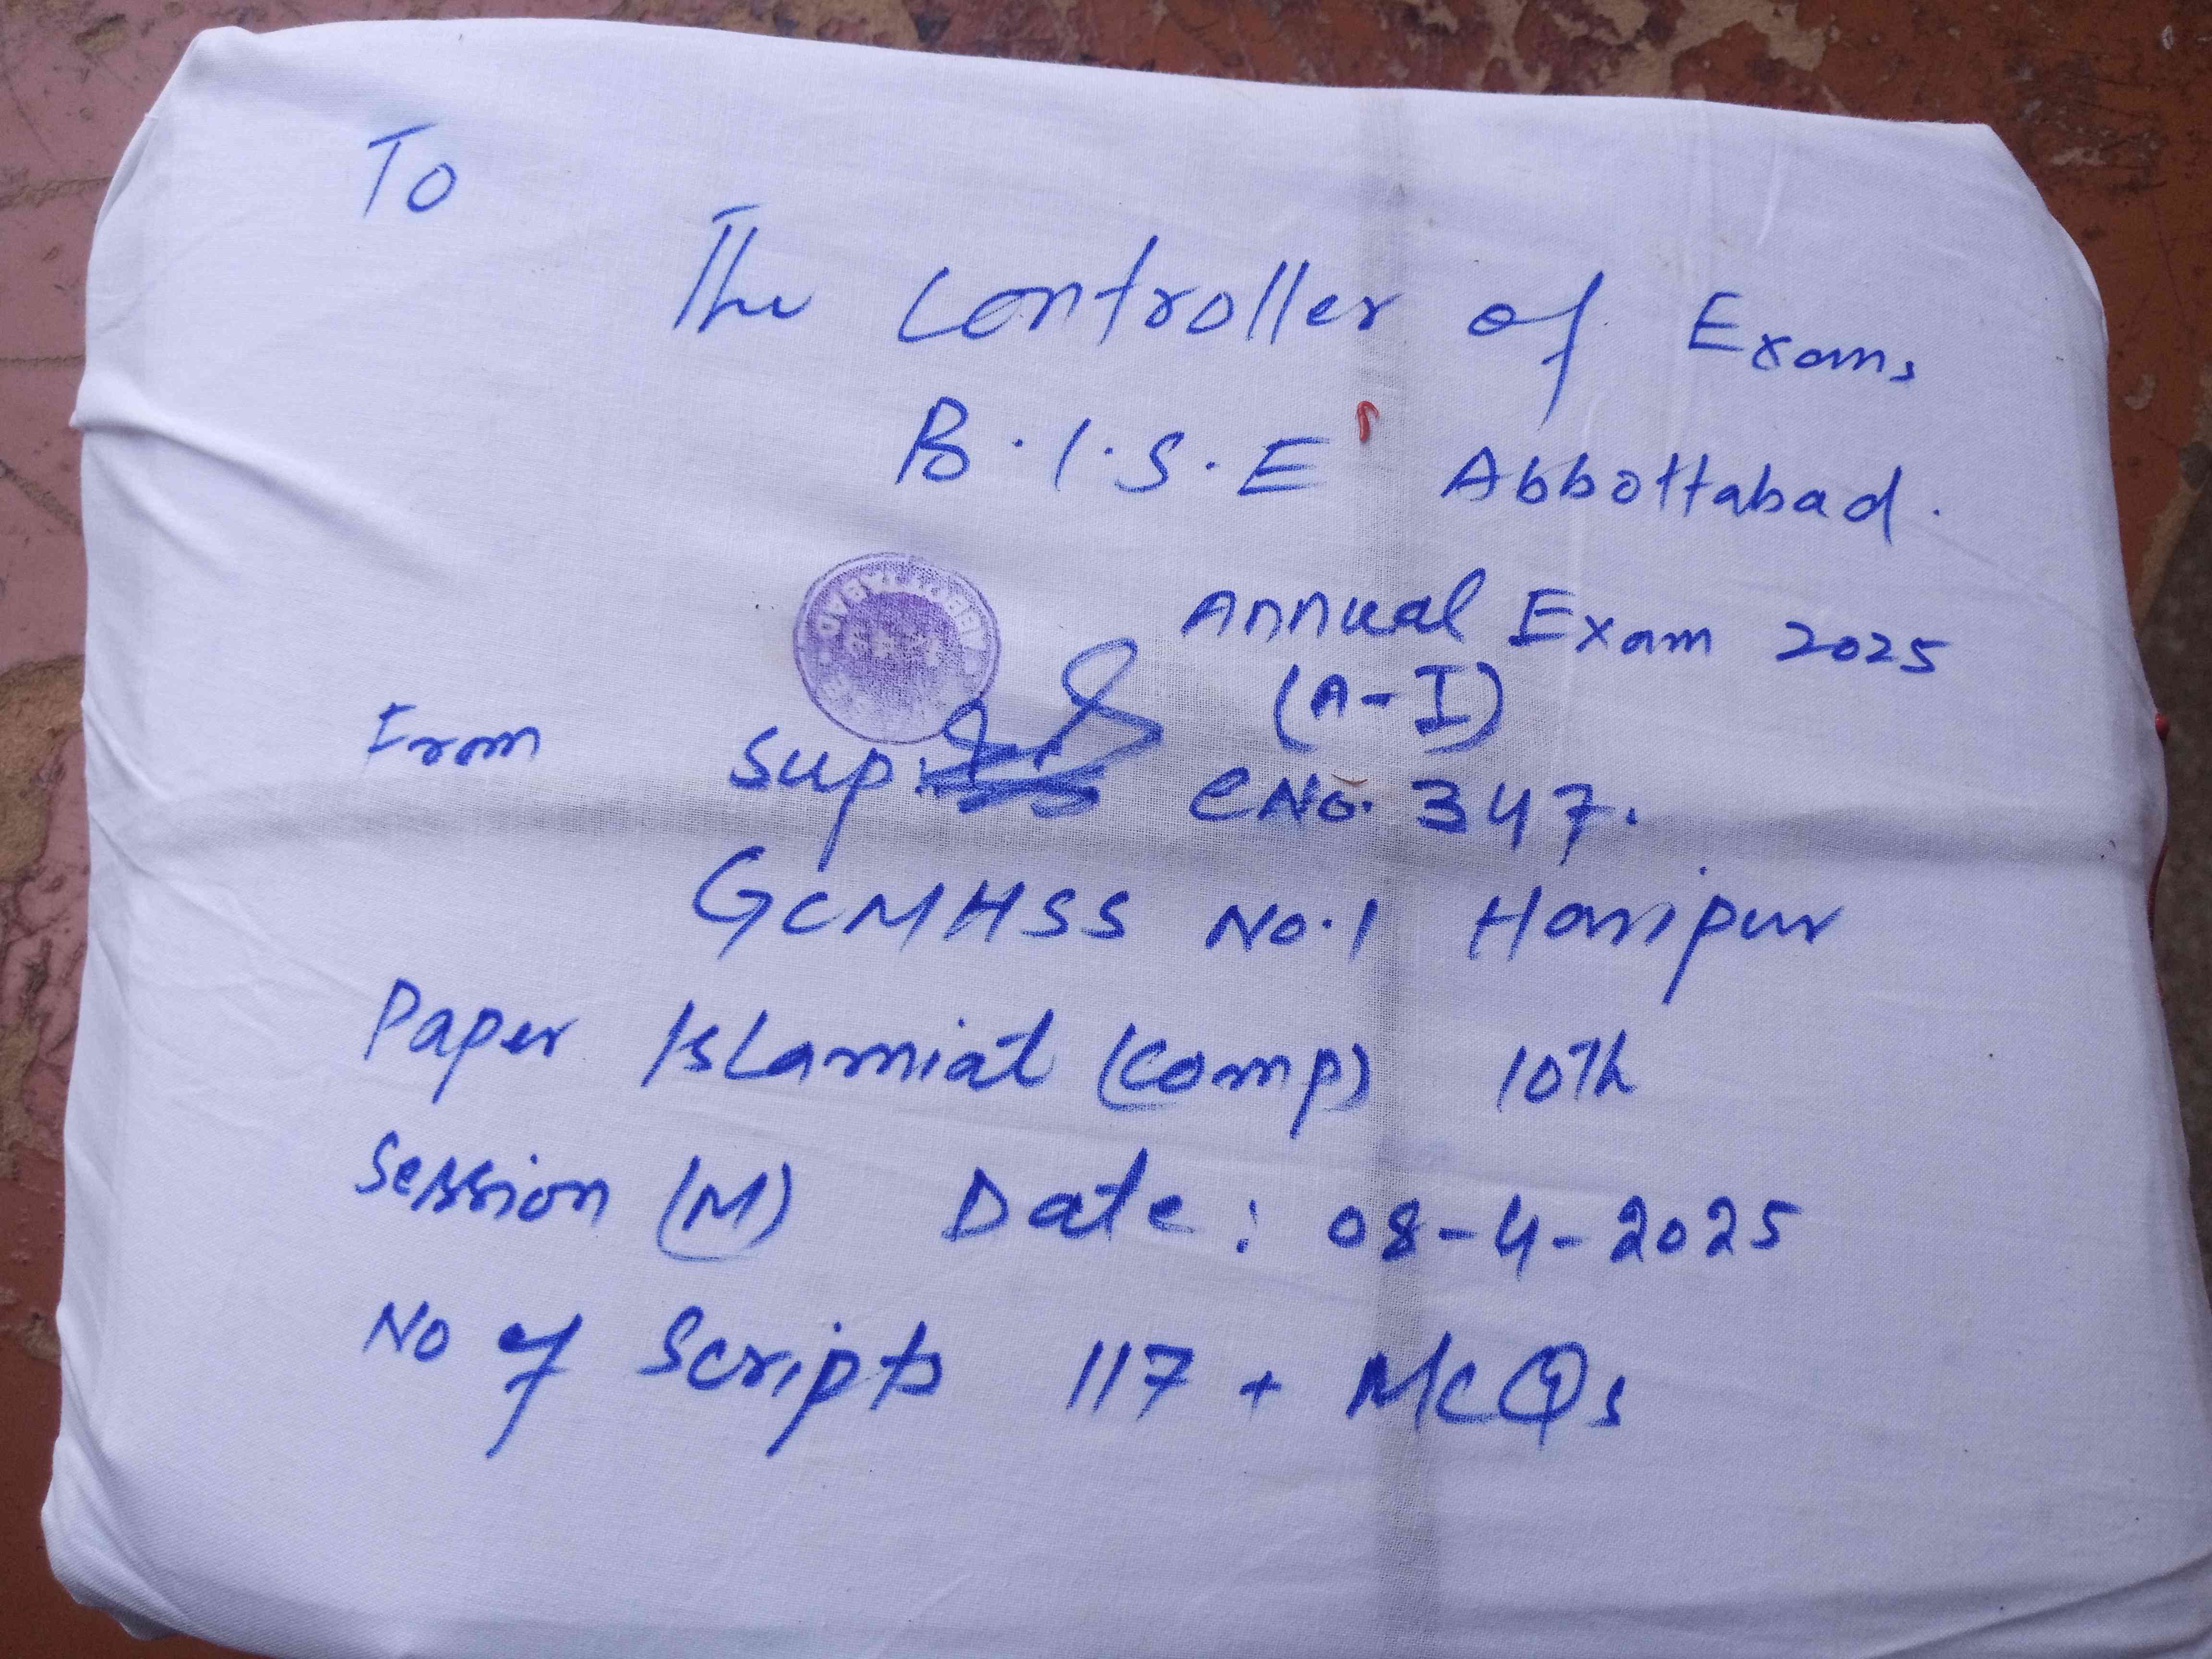 To
The Controller of Exams
B.I.S.E Abbottabad.
Annual Exam 2025
(A-I)
From Sup: CNo. 347.
GCMHSS No.1 Haripur
Paper Islamiat (Comp) 10Th
Session (M) Date: 08-4-2025
No of Scripts 117 + MCQs